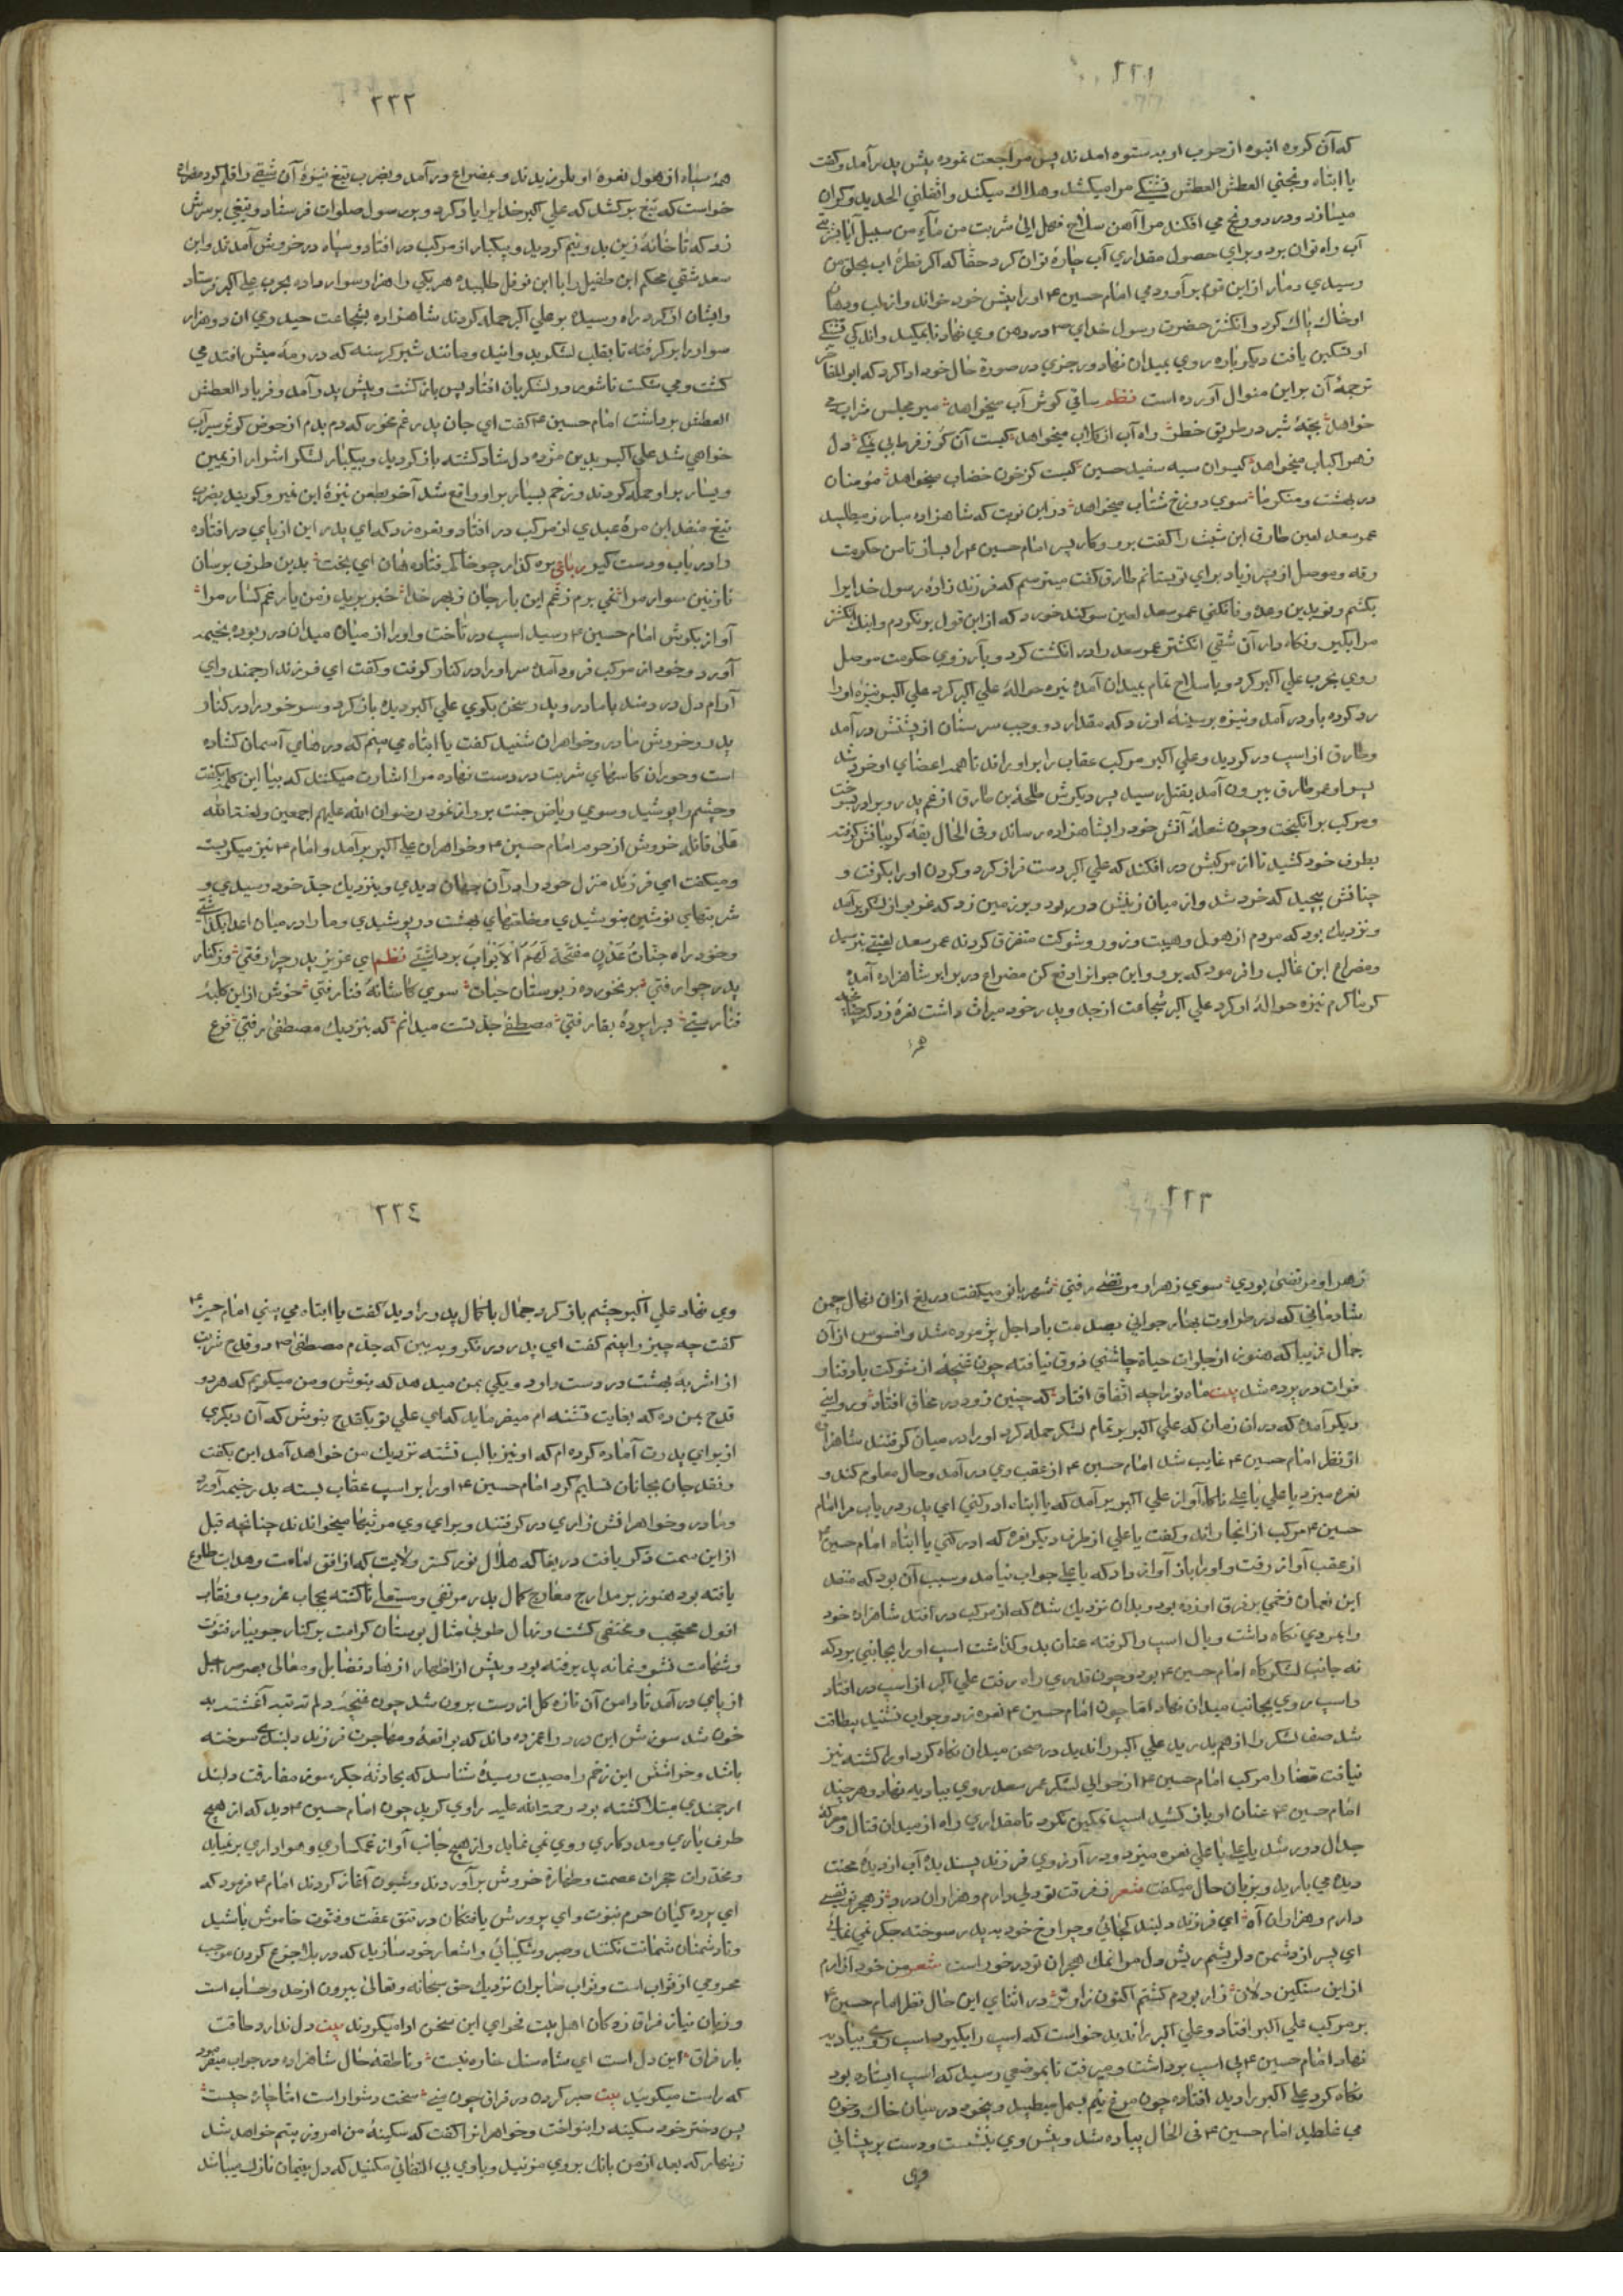 ٢٢١
که آن کروه انبوه از حرب او بستوه امدند پس مراجعت نموده پیش پدر آمد و کفت
یا ابتاه و نجنی العطش العطش تشنکی مرا میکشد و هلاك میکند و اثقلنی الحدید و کران
میسازد و در رنج می افکند مرا آهن سلاح فهل الی شربت من ماء من سبیل آیا بشربتی
آب راه توان برد و برای حصول مقداری آب چارۀ توان کرد حقا که اکر قطرۀ اب بحلق من
رسیدی دمار از این قوم بر آوردمی امام حسین ۴ اورا پیش خود خواند و از لب و دهان
او خاك پاك کرد و انکشتر حضرت رسول خدای ص در دهن وی نهاد تا بمکید و اندکی تشنکی
او تسکین یافت دیکر باره روی بمیدان نهاد و رجزی در صورة حال خود ادا کرد که ابو المفاخر
ترجمۀ آن بر این منوال آورده است نظم ساقی کوثر آب میخواهد میر مجلس شراب می
خواهد بچۀ شیر در طریق خطر راه آب از کلاب میخواهد کیست آن کز فرط بی نمکی دل
زهرا کباب میخواهد کیسوان سیه سفید حسین کیست کز خون خضاب میخواهد مؤمنان
در بهشت و منکر ما سوی دوزخ شتاب میخواهد و در این نوبت که شاهزاده مبارز میطلبید
عمر سعد لعین طارق ابن شبث را کفت برو و کار پسر امام حسین ۴ را بساز تا من حکومت
رقه و موصل از پسر زیاد برای تو بستانم طارق کفت میترسم که فرزند زادۀ رسول خدا را
بکشم و تو بدین وعده وفا نکنی عمر سعد لعین سوکند خورد که از این قول برنکردم و اینك انکشتر
مرا بکیر و نکاه دار آن شقی انکشتر عمر سعد را در انکشت کرد و بآرزوی حکومت موصل
روی بحرب علی اکبر کرد و با سلاح تمام بمیدان آمده نیزه حوالۀ علی اکبر کرد علی اکبر نیزه اورا
رد کرده باو در آمد و نیزه بر سینۀ او زد که مقدار دو وجب سر سنان از پشتش در آمد
و طارق از اسب در کردید و علی اکبر مرکب عقاب را بر او راند تا همه اعضای او خورد شد
پسر او عمر طارق بیرون آمد بقتل رسید پسر دیکرش طلحة بن طارق از غم پدر و برادر بسوخت
و مرکب بر انکیخت و چون شعلۀ آتش خود را بشاهزاده رساند و فی الحال یقۀ کریبانش کرفته
بطرف خود کشید تا از مرکبش در افکند که علی اکبر دست فراز کرد و کردن اورا بکرفت و
چنانش پیچید که خورد شد و از میان زینش در ربود و بر زمین زد که غریو از لشکر برآمد
و نزدیك بود که مردم از هول و هیبت و زور و شوکت متفرق کردند عمر سعد لعین بترسید
و مصراع ابن غالب را فرمود که برو و این جوانرا دفع کن مصراع در برابر شاهزاده آمده
کرما کرم نیزه حوالۀ او کرد علی اکبر شجاعت از جد و پدر خود میراث داشت نعرۀ زد که چنانچه
همه
٢٢٢
همۀ سپاه از هول نعرۀ او بلرزیدند و بمصراع در آمد و بضرب تیغ نیزۀ آن شقی را قلم کرد مصراع
خواست که تیغ بر کشد که علی اکبر خدا را یاد کرد و بر رسول صلوات فرستاد و تیغی بر سرش
زد که تا خانۀ زین بدو نیم کردید و پیکبار از مرکب در افتاد و سپاه در خروش آمدند و ابن
سعد شقی محکم ابن طفیل را با ابن نوفل طلبیده هر یکی را هزار سوار داده بحرب علی اکبر فرستاد
و ایشان از کرد راه رسیده بر علی اکبر حمله کردند شاهزاده بشجاعت حیدری ان دو هزار
سوار را بر کرفته تا بقلب لشکر بدوانید و مانند شیر کرسنه که در رمۀ میش افتد می
کشت و می شکست تا شور در لشکریان افتاد پس باز کشت و پیش پدر آمد و فریاد العطش
العطش برداشت امام حسین ۴ کفت ای جان پدر غم مخور که دم بدم از حوض کوثر سیراب
خواهی شد علی اکبر بدین مژده دل شاد کشته باز کردید و بیکبار لشکر اشرار از یمین
و یسار بر او حمله کردند و زخم بسیار بر او واقع شد آخر بطعن نیزۀ ابن نمیر و کویند بضرب
تیغ منقذ ابن مرۀ عبدی از مرکب در افتاد و نعره زد که ای پدر این از پای در افتاده
را در یاب و دست کیر رباعی بره کذار چو خاکم فتاده هان ای بخت بدین طرف برسان
نازنین سوار مرا نمی برم ز غم این بار جان ز بهر خدا خبر برید ز من یار غمکسار مرا
آواز بکوش امام حسین ۴ رسید اسب در تاخت و اورا از میان میدان در ربوده بخیمه
آورد و خود از مرکب فرود آمده سر اورا در کنار کرفت و کفت ای فرزند ارجمند و ای
آرام دل دردمند با مادر و پدر سخن بکوی علی اکبر دیده باز کرد و سر خود را در کنار
پدر و خروش مادر و خواهران شنید کفت یا ابتاه می بینم که درهای آسمان کشاده
است و حوران کاسهای شربت در دست نهاده مرا اشارت میکنند که بیا این کلمه بکفت
و چشم را پوشید و سوی ریاض جنت پرواز نمود رضوان الله علیهم اجمعین و لعنة الله
علی قاتله خروش از حرم امام حسین ۴ و خواهران علی اکبر بر آمد و امام ۴ نیز میکریست
و میکفت ای فرزند منزل خود را در آن جهان دیدی و بنزدیك جد خود رسیدی و
شربتهای نوشین بنوشیدی و خلعتهای بهشت در پوشیدی و ما را در میان اعدا بکذاشتی
و خود راه جنات عدن مفتحة لهم الابواب برداشتی نظم ای عزیز پدر چرا رفتی وز کنار
پدر چرا رفتی بر نخورده ز بوستان حیات سوی کاشانۀ فنا رفتی خوش از این کلبۀ
فنا رستی بسراپردۀ بقا رفتی مصطفی جد تست میدانم که بنزدیك مصطفی رفتی فرع
٢٢٣
زهرا و مرتضی بودی سوی زهرا و مرتضی رفتی شهر بانو میکفت دریغ از ان نهال چمن
شادمانی که در طراوت بهار جوانی بصدمت باد اجل پژمرده شد و افسوس از آن
جمال زیبا که هنوز از جلوات حیاة چاشنی ذوق نیافته چون غنچه از شوکت باد فنا و
فوات در پرده شد بیت ماه نو را چه اتفاق افتاد که چنین زود در محاق افتاد و روایتی
دیکر آمده که در ان زمان که علی اکبر بر تمام لشکر حمله کرد اورا در میان کرفتند شاهزاده
از نظر امام حسین ۴ غایب شد امام حسین ۴ از عقب وی در آمد و حال معلوم کند و
نعره میزد یا علی یا علی ناکاه آواز علی اکبر بر آمد که یا ابتاه ادرکنی ای پدر در یاب مرا امام
حسین ۴ مرکب از انجا راند و کفت یا علی از طرف دیکر نعره که ادرکنی یا ابتاه امام حسین ۴
از عقب آواز رفت و اورا باز آواز داد که یا علی جواب نیامد و سبب آن بود که منقذ
ابن نعمان زخمی بر فرق او زده بود و بدان نزدیك شده که از مرکب در افتد شاهزاده خود
را بمردی نکاه داشت و یال اسب را کرفته عنان بدو کذاشت اسب اورا بجانبی برد که
نه جانب لشکرکاه امام حسین ۴ بود و چون قدری راه رفت علی اکبر از اسب در افتاد
و اسب روی بجانب میدان نهاد اما چون امام حسین ۴ نعره زد و جواب نشنید بیطاقت
شد صف لشکر را از هم بدرید علی اکبر را ندید در صحن میدان نکاه کرد اورا کشته نیز
نیافت قضا را مرکب امام حسین ۴ از حوالی لشکر عمر سعد روی ببادیه نهاد و هر چند
امام حسین ۴ عنان او باز کشید اسب تمکین نکرد تا مقداری راه از میدان قتال و معرکۀ
جدال دور شد یا علی یا علی نعره میزد و در آرزوی فرزند پسندیده آب از دیدۀ محنت
دیده می بارید و بزبان حال میکفت شعر ز فرقت تو دلی دارم و هزاران درد ز هجر تو نفسی
دارم و هزاران آه ای فرزند دلبند کجائی و چرا رخ خود به پدر سوخته جکر نمی نمائی
ای پسر از دشمن دلم ریشم ریش دل مرا نمك هجران تو در خور است شعر من خود آزارم
از این سنکین دلان زار بودم کشتم اکنون زار تر در اثنای این حال نظر امام حسین ۴
بر مرکب علی اکبر افتاد و علی اکبر را ندید خواست که اسب را بکیرد اسب روی ببادیه
نهاد امام حسین ۴ پی اسب برداشت و میرفت تا بموضعی رسید که اسب ایستاده بود
نکاه کرد علی اکبر را دید افتاده چون مرغ نیم بسمل میطپید و بیخود در میان خاك و خون
می غلطید امام حسین ۴ فی الحال پیاده شد و پیش وی بنشست و دست بر پیشانی
وی
٢٢٤
وی نهاد علی اکبر چشم باز کرد جمال با کمال پدر را دید کفت یا ابتاه می بینی امام حسین ۴
کفت چه چیز را بینم کفت ای پدر در نکر و ببین که جدم مصطفی ص دو قدح شربت
از اشربۀ بهشت در دست دارد و یکی بمن میدهد که بنوش و من میکویم که هر دو
قدح بمن ده که بغایت تشنه ام میفرماید که ای علی تو یکقدح بنوش که آن دیکری
از برای پدرت آماده کرده ام که او نیز با لب تشنه نزدیك من خواهد آمد این بکفت
و نقد جان بجانان تسلیم کرد امام حسین ۴ اورا بر اسب عقاب بسته بدر خیمه آورد
و مادر و خواهرانش زاری در کرفتند و برای وی مرثیها میخواندند چنانچه قبل
از این سمت ذکر یافت دریغا که هلال نور کستر ولایت که از افق امامت و هدایت طلوع
یافته بود هنوز بر مدارج معارج کمال بدر مرتقی و مستعلی ناکشته بحجاب غروب و نقاب
افول محتجب و مختفی کشت و نهال طوبی مثال بوستان کرامت بر کنار جویبار فتوت
و شهامت نشو و نما نه پذیرفته بود و پیش از اظهار ازهار فضایل و معالی بصرصر اجل
از پای در آمد تا دامن آن تازه کل از دست برون شد چون غنچه دلم ته بته آغشته به
خون شد سوزش این درد را غمزده داند که بواقعۀ و مهاجرت فرزند دلبندی سوخته
باشد و خراشش این زخم را مصیبت رسیده شناسد که بحادثۀ جکر سوز مفارقت دلبند
ارجمندی مبتلا کشته بود رحمة الله علیه راوی کوید چون امام حسین ۴ دید که از هیچ
طرف یاری و مددکاری روی نمی نماید و از هیچ جانب آواز غمکساری و هواداری بر نیاید
و مخدرات حجران عصمت و طهارة خروش بر آوردند و شیون آغاز کردند امام ۴ فرمود که
ای پرده کیان حرم نبوت و ای پرورش یافتکان در تتق عفت و فتوت خاموش باشید
و تا دشمنان شماتت نکنند و صبر و شکیبائی را شعار خود سازید که در بلا جزع کردن موجب
محرومی از ثواب است و ثواب صابران نزدیك حق سبحانه و تعالی بیرون از حد و حساب است
و زبان نیاز فراق زدکان اهل بیت فحوای این سخن ادا میکردند بیت دل ندارد طاقت
بار فراق این دل است ای شاه سنك خاره نیست و ناطقۀ حال شاهزاده در جواب میفرمود
که راست میکویید بیت صبر کردن در فراق چون منی سخت دشوار است اما چاره چیست
پس دختر خود سکینه را بنواخت و خواهرانرا کفت که سکینۀ من امروز یتیم خواهد شد
زینهار که بعد از من بانك بر وی مزنید و با وی بی التفاتی مکنید که دل یتیمان نازك میباشد